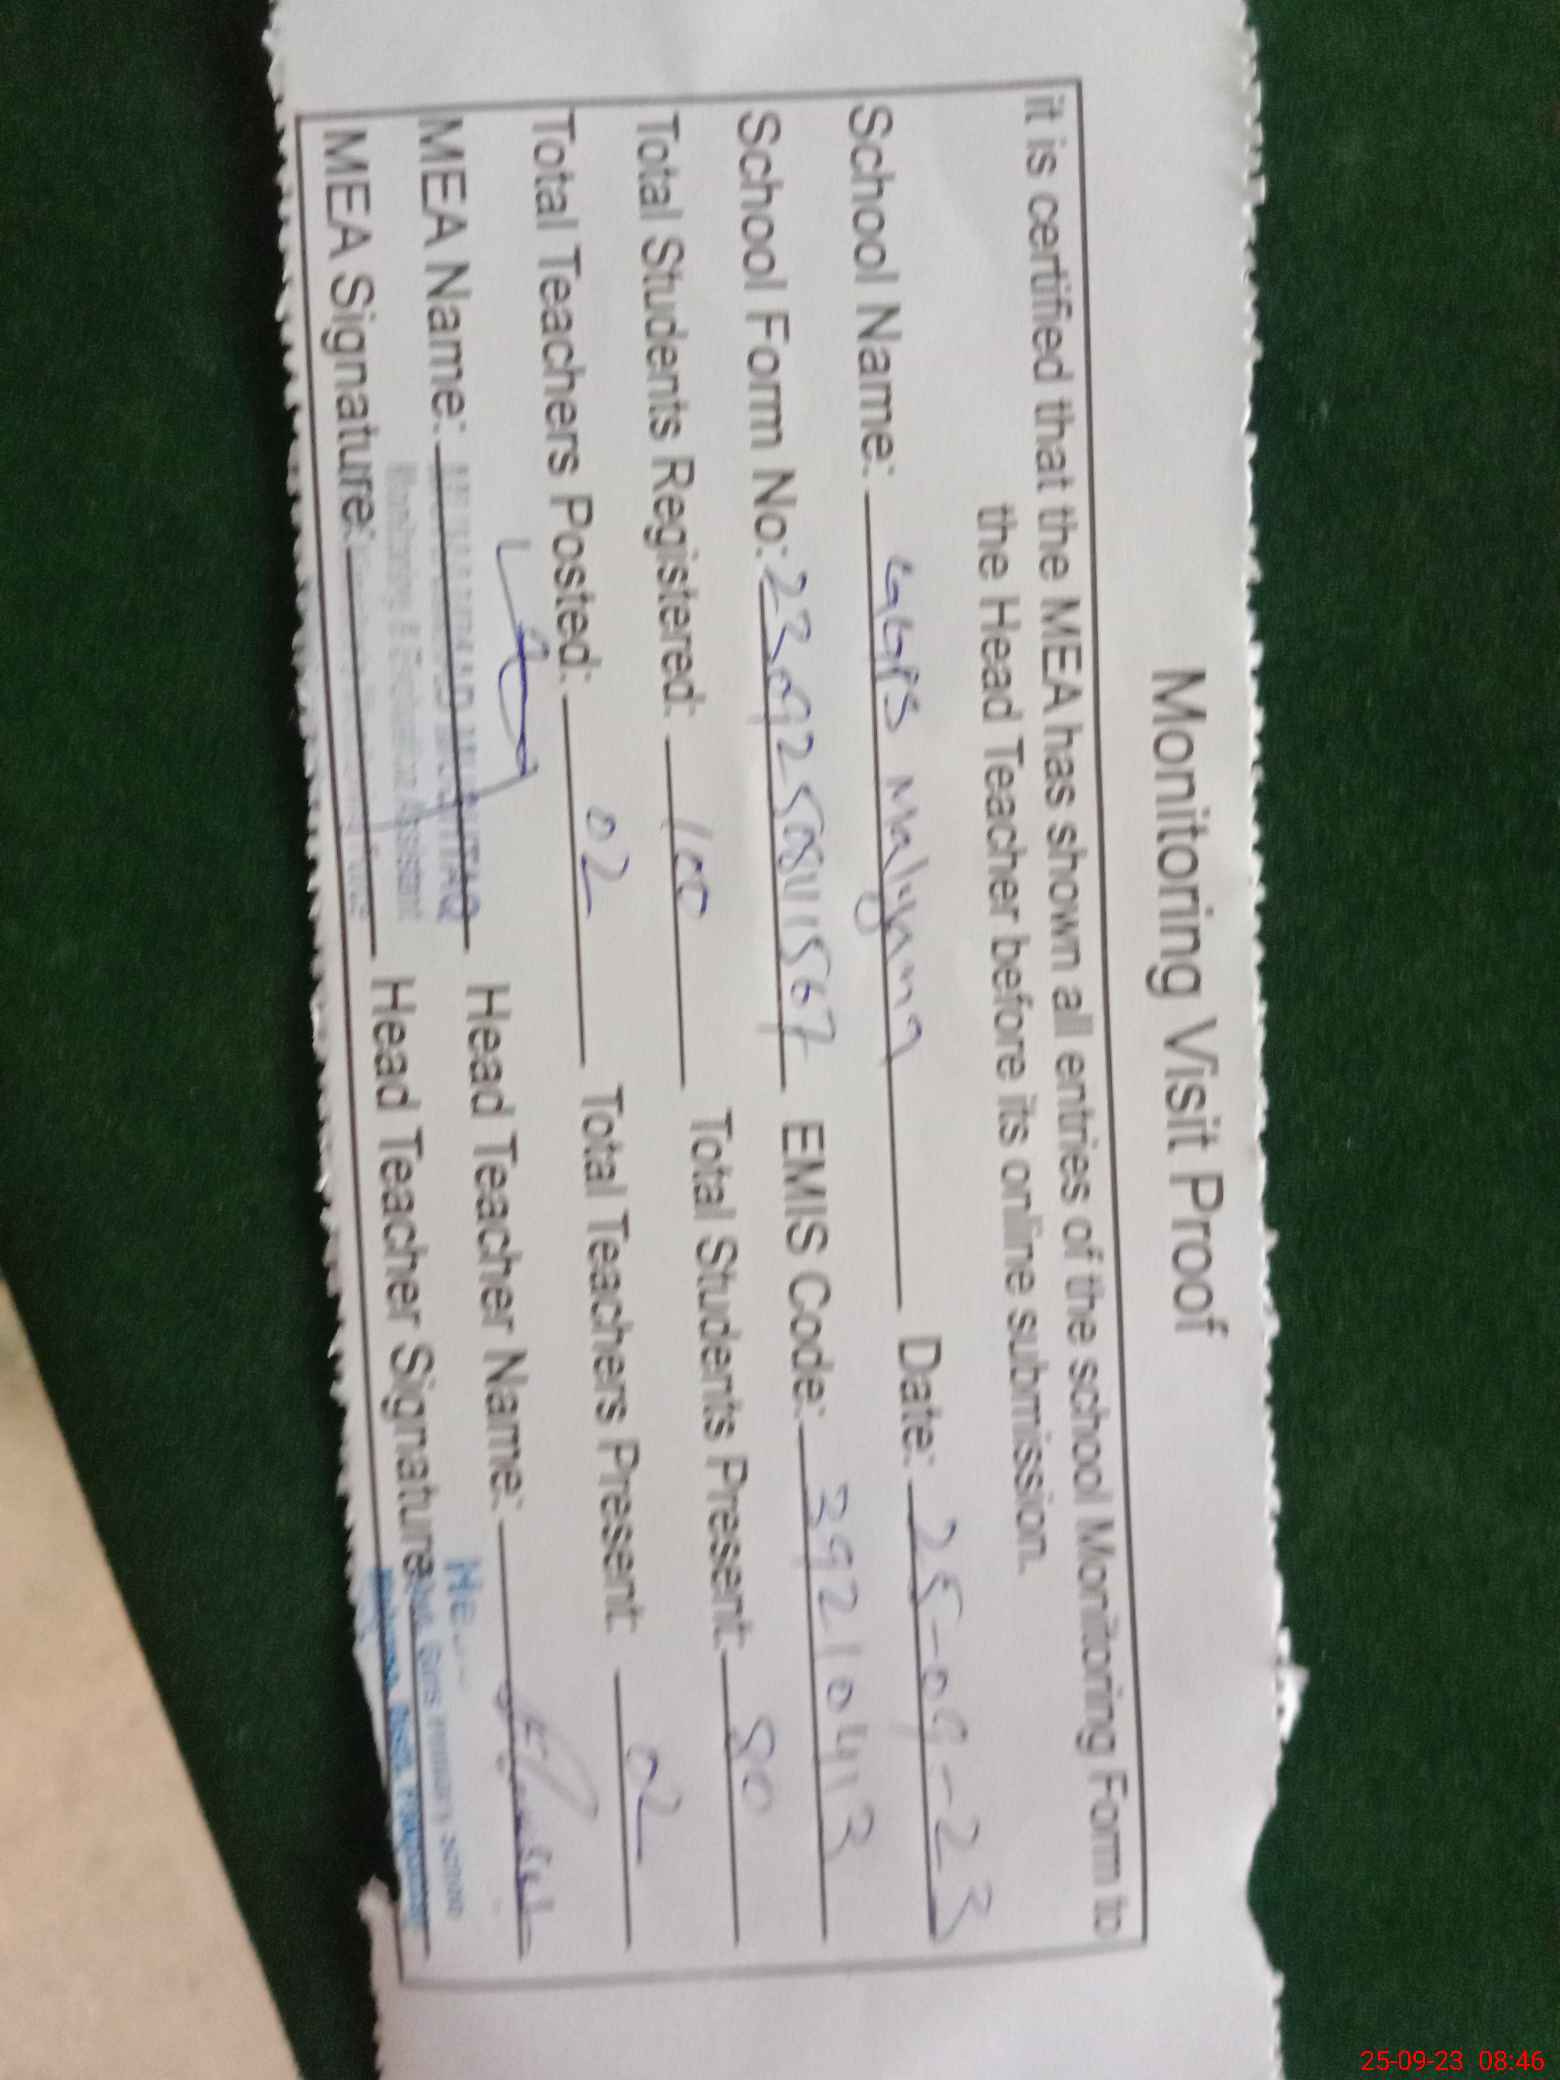 Monitoring Visit Proof
it is certified that the MEA has shown all entries of the school Monitoring Form to
the Head Teacher before its online submission.
School Name: GGPS Date: 25-09-23
School Form No: EMIS Code: 39210413
Total Students Registered: 100 Total Students Present: 80
Total Teachers Posted: 02 Total Teachers Present: 02
MEA Name: Head Teacher Name:
Monitoring & Evaluation Assistant
MEA Signature: Head Teacher Signature:
25-09-23 08:46